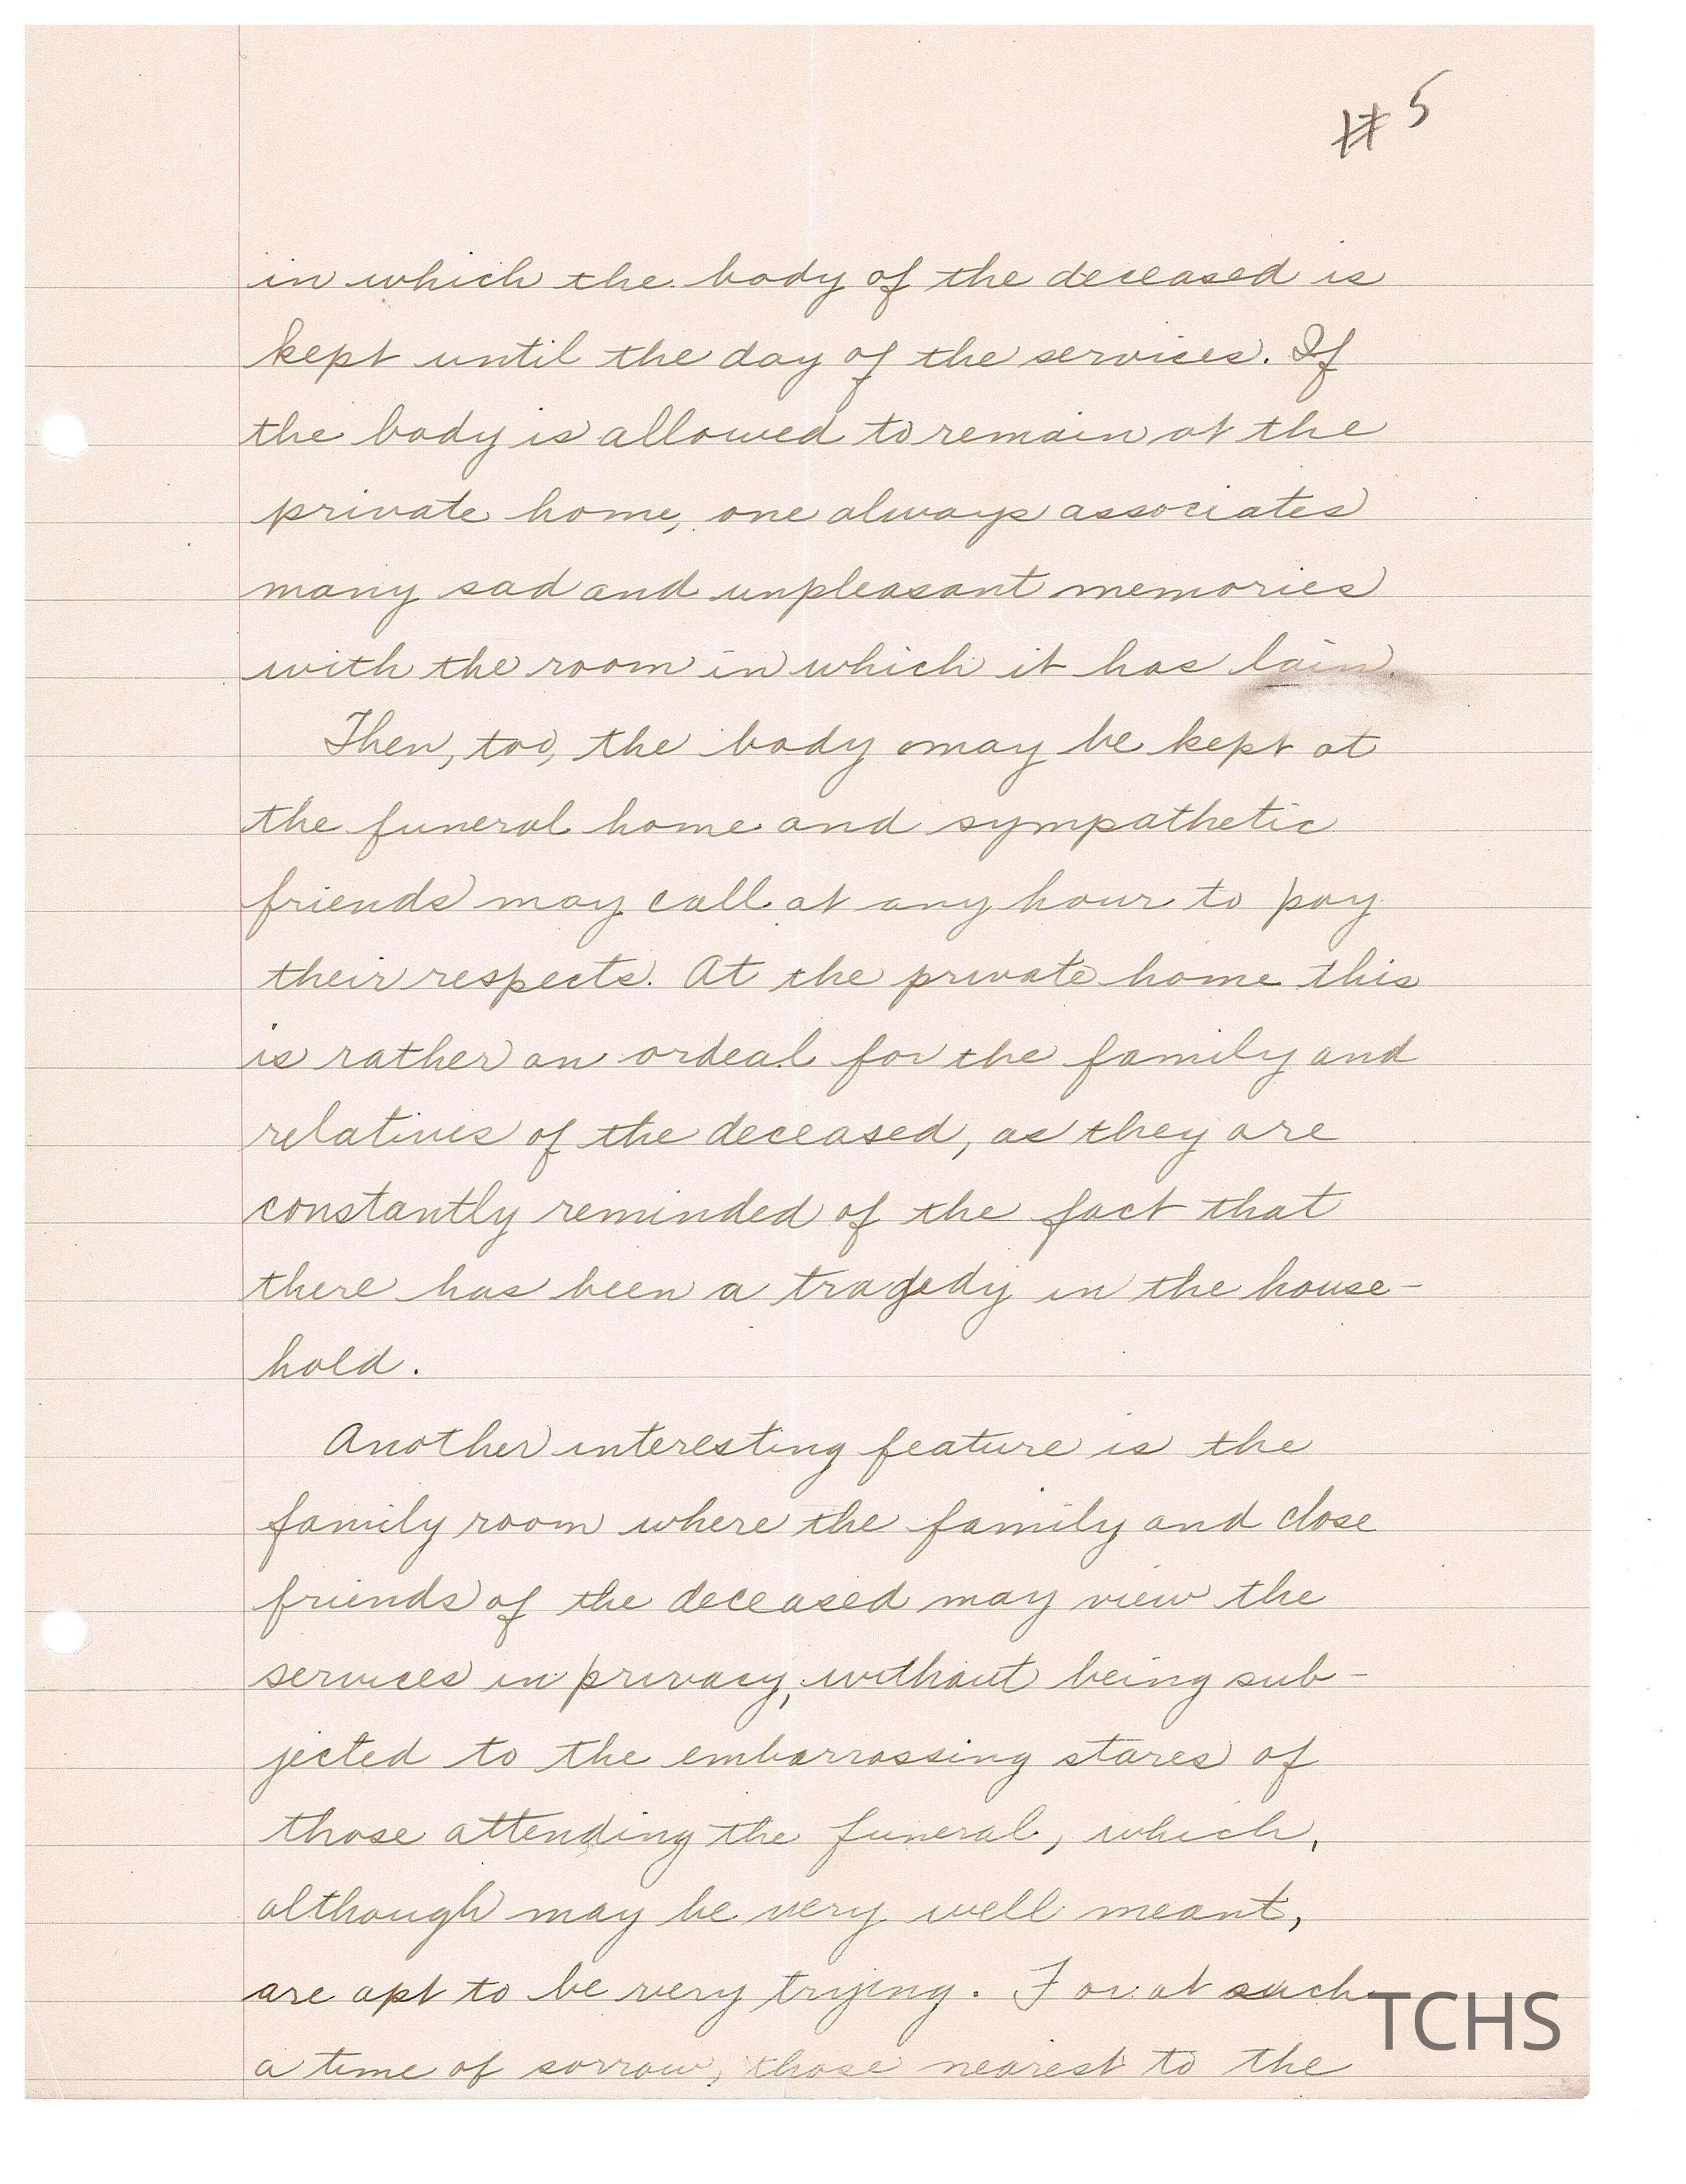 # 5
in which the body of the deceased is
kept until the day of the services. If
the body is allowed to remain at the
private home, one always associates
many sad and unpleasant memories
with the room in which it has lain.
Then, too, the body may be kept at
the funeral home and sympathetic
friends may call at any hour to pay
their respects. At the private home this
is rather an ordeal for the family and
relatives of the deceased, as they are
constantly reminded of the fact that
there has been a tragedy in the house-
hold.
Another interesting feature is the
family room where the family and close
friends of the deceased may view the
services in privacy, without being sub-
jected to the embarrassing stares of
those attending the funeral, which,
although may be very well meant,
are apt to be very trying. For at such
a time of sorrow, those nearest to the
TCHS